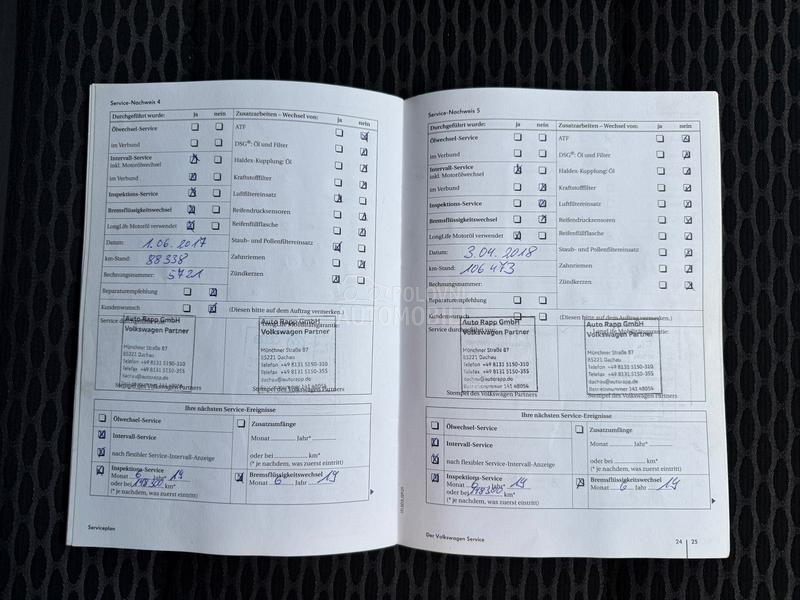 Service-Nachweis 4
Durchgeführt wurde: ja nein
Ölwechsel-Service
im Verbund
Intervall-Service
inkl. Motorölwechsel
im Verbund
Inspektions-Service
Bremsflüssigkeitswechsel
LongLife Motoröl verwendet
Datum: 1.06.2017
km-Stand: 88 338
Rechnungsnummer: 5721
Reparaturempfehlung
Kundenwunsch
Zusatzarbeiten – Wechsel von: ja nein
ATF
DSG®: Öl und Filter
Haldex-Kupplung: Öl
Kraftstofffilter
Luftfiltereinsatz
Reifendrucksensoren
Reifenfüllflasche
Staub- und Pollenfiltereinsatz
Zahnriemen
Zündkerzen
(Diesen bitte auf dem Auftrag vermerken.)
Auto Rapp GmbH
Volkswagen Partner
Münchner Straße 87
85221 Dachau
Telefon +49 8131 5150-310
Telefax +49 8131 5150-355
dachau@autorapp.de
Stempel des Volkswagen Partners
Auto Rapp GmbH
Volkswagen Partner
Münchner Straße 87
85221 Dachau
Telefon +49 8131 5150-310
Telefax +49 8131 5150-355
dachau@autorapp.de
Stempel des Volkswagen Partners
Ihre nächsten Service-Ereignisse
Ölwechsel-Service
Intervall-Service
nach flexibler Service-Intervall-Anzeige
Inspektions-Service
Monat 6 Jahr* 19
oder bei 148300 km*
(* je nachdem, was zuerst eintritt)
Zusatzumfänge
Monat Jahr*
oder bei km*
(* je nachdem, was zuerst eintritt)
Bremsflüssigkeitswechsel
Monat 6 Jahr 19
Serviceplan
Service-Nachweis 5
Durchgeführt wurde: ja nein
Ölwechsel-Service
im Verbund
Intervall-Service
inkl. Motorölwechsel
im Verbund
Inspektions-Service
Bremsflüssigkeitswechsel
LongLife Motoröl verwendet
Datum: 3.04.2018
km-Stand: 106 473
Rechnungsnummer:
Reparaturempfehlung
Kundenwunsch
Zusatzarbeiten – Wechsel von: ja nein
ATF
DSG®: Öl und Filter
Haldex-Kupplung: Öl
Kraftstofffilter
Luftfiltereinsatz
Reifendrucksensoren
Reifenfüllflasche
Staub- und Pollenfiltereinsatz
Zahnriemen
Zündkerzen
(Diesen bitte auf dem Auftrag vermerken.)
Auto Rapp GmbH
Volkswagen Partner
Münchner Straße 87
85221 Dachau
Telefon +49 8131 5150-310
Telefax +49 8131 5150-355
dachau@autorapp.de
Betriebsnummer 141 48054
Stempel des Volkswagen Partners
Auto Rapp GmbH
Volkswagen Partner
Münchner Straße 87
85221 Dachau
Telefon +49 8131 5150-310
Telefax +49 8131 5150-355
dachau@autorapp.de
Betriebsnummer 141 48054
Stempel des Volkswagen Partners
Ihre nächsten Service-Ereignisse
Ölwechsel-Service
Intervall-Service
nach flexibler Service-Intervall-Anzeige
Inspektions-Service
Monat 6 Jahr* 19
oder bei 148300 km*
(* je nachdem, was zuerst eintritt)
Zusatzumfänge
Monat Jahr*
oder bei km*
(* je nachdem, was zuerst eintritt)
Bremsflüssigkeitswechsel
Monat 6 Jahr 19
Der Volkswagen Service
24 25